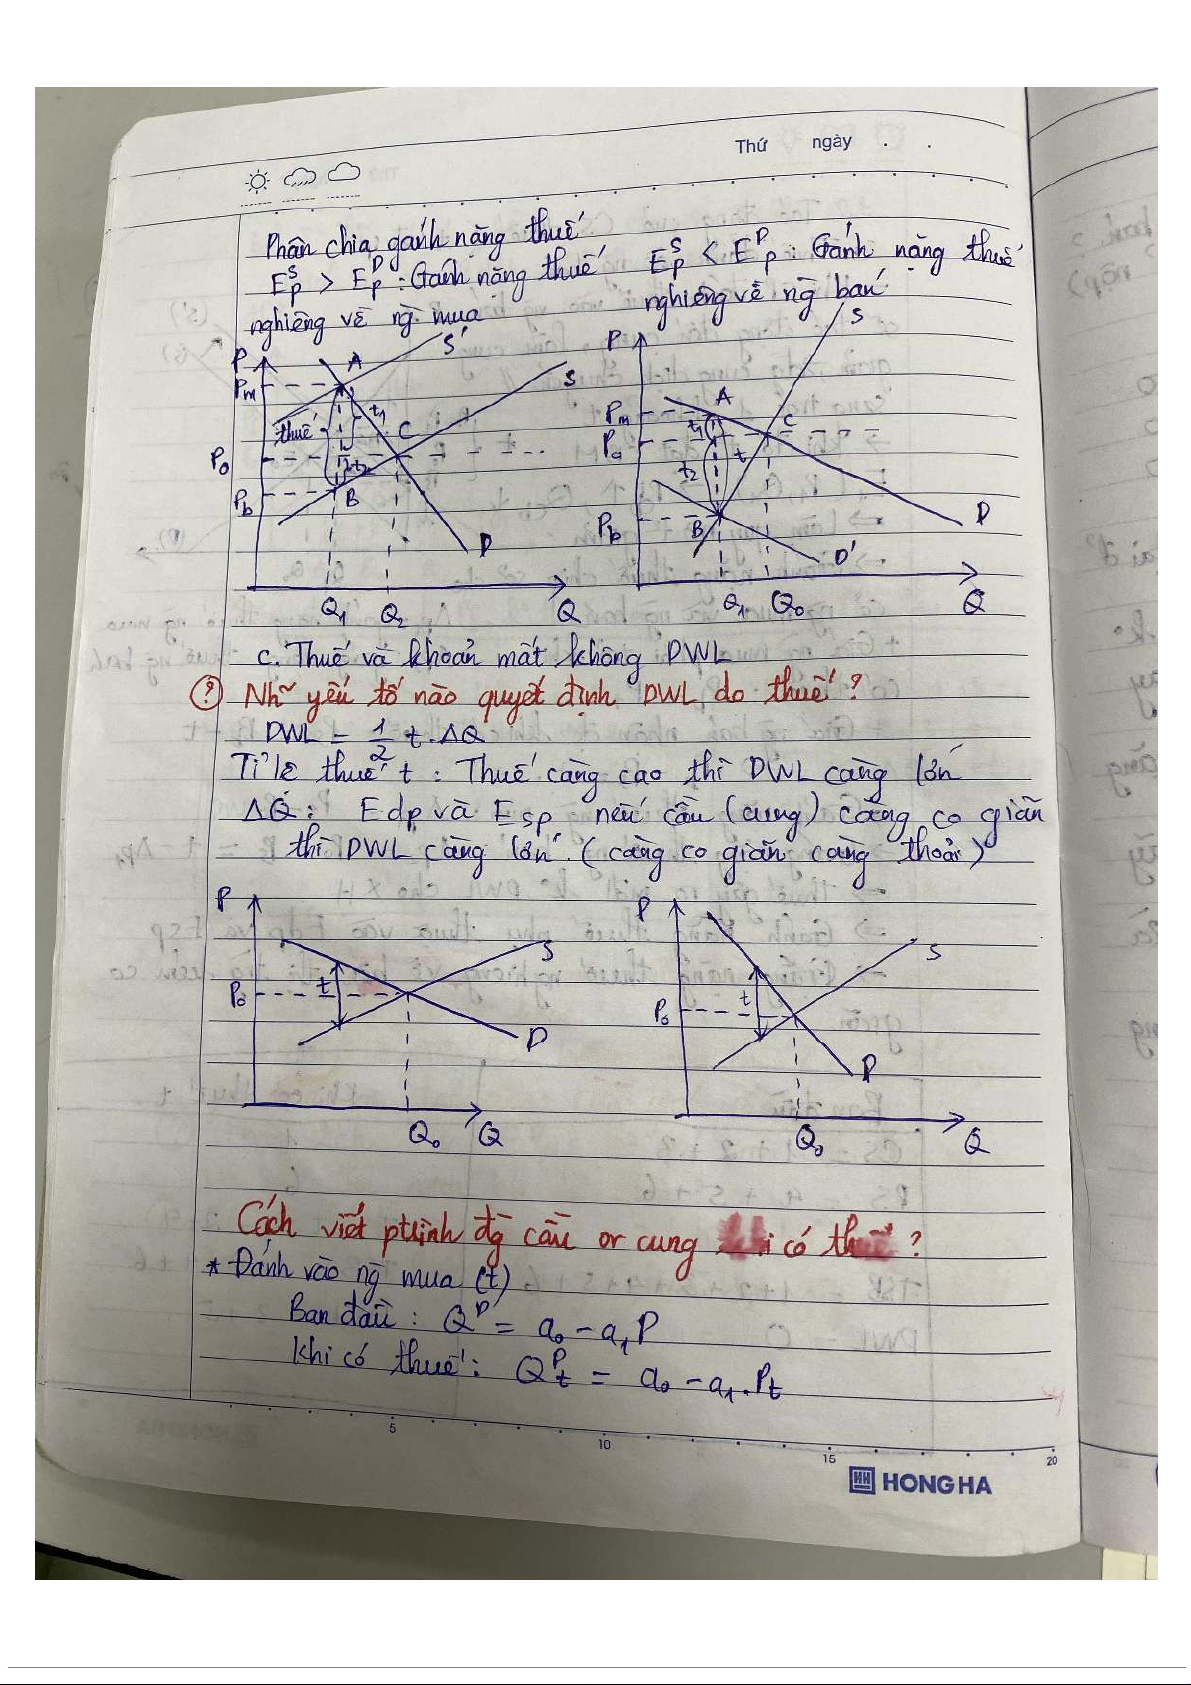 Thứ ngày . .
Phân chia gánh nặng thuế
E_p^S > E_p^D : Gánh nặng thuế
nghiêng về ng mua
E_p^S < E_p^D : Gánh nặng thuế
nghiêng về ng bán
P
S'
A
S
Pm
thuế
t1
C
P0
t2
B
Pb
D
Q1
Q2
Q
P
S
A
Pm
t1
C
P0
t
t2
Pb
B
D
D'
Q1
Q0
Q
c. Thuế và khoản mất không DWL
? Nh~ yếu tố nào quyết định DWL do thuế ?
DWL = 1/2 t.ΔQ
Tỉ lệ thuế t : Thuế càng cao thì DWL càng lớn
ΔQ : Edp và Esp nếu cầu (cung) càng co giãn
thì DWL càng lớn. (càng co giãn càng thoải)
P
S
t
P0
D
Q0
Q
P
S
t
P0
D
Q0
Q
Cách viết ptrình đg cầu or cung có thuế ?
* Đánh vào ng mua (t)
Ban đầu : Q^D = a0 - a1P
Khi có thuế : Q_t^D = a0 - a1.Pt
5
10
15
20
HH HONG HA